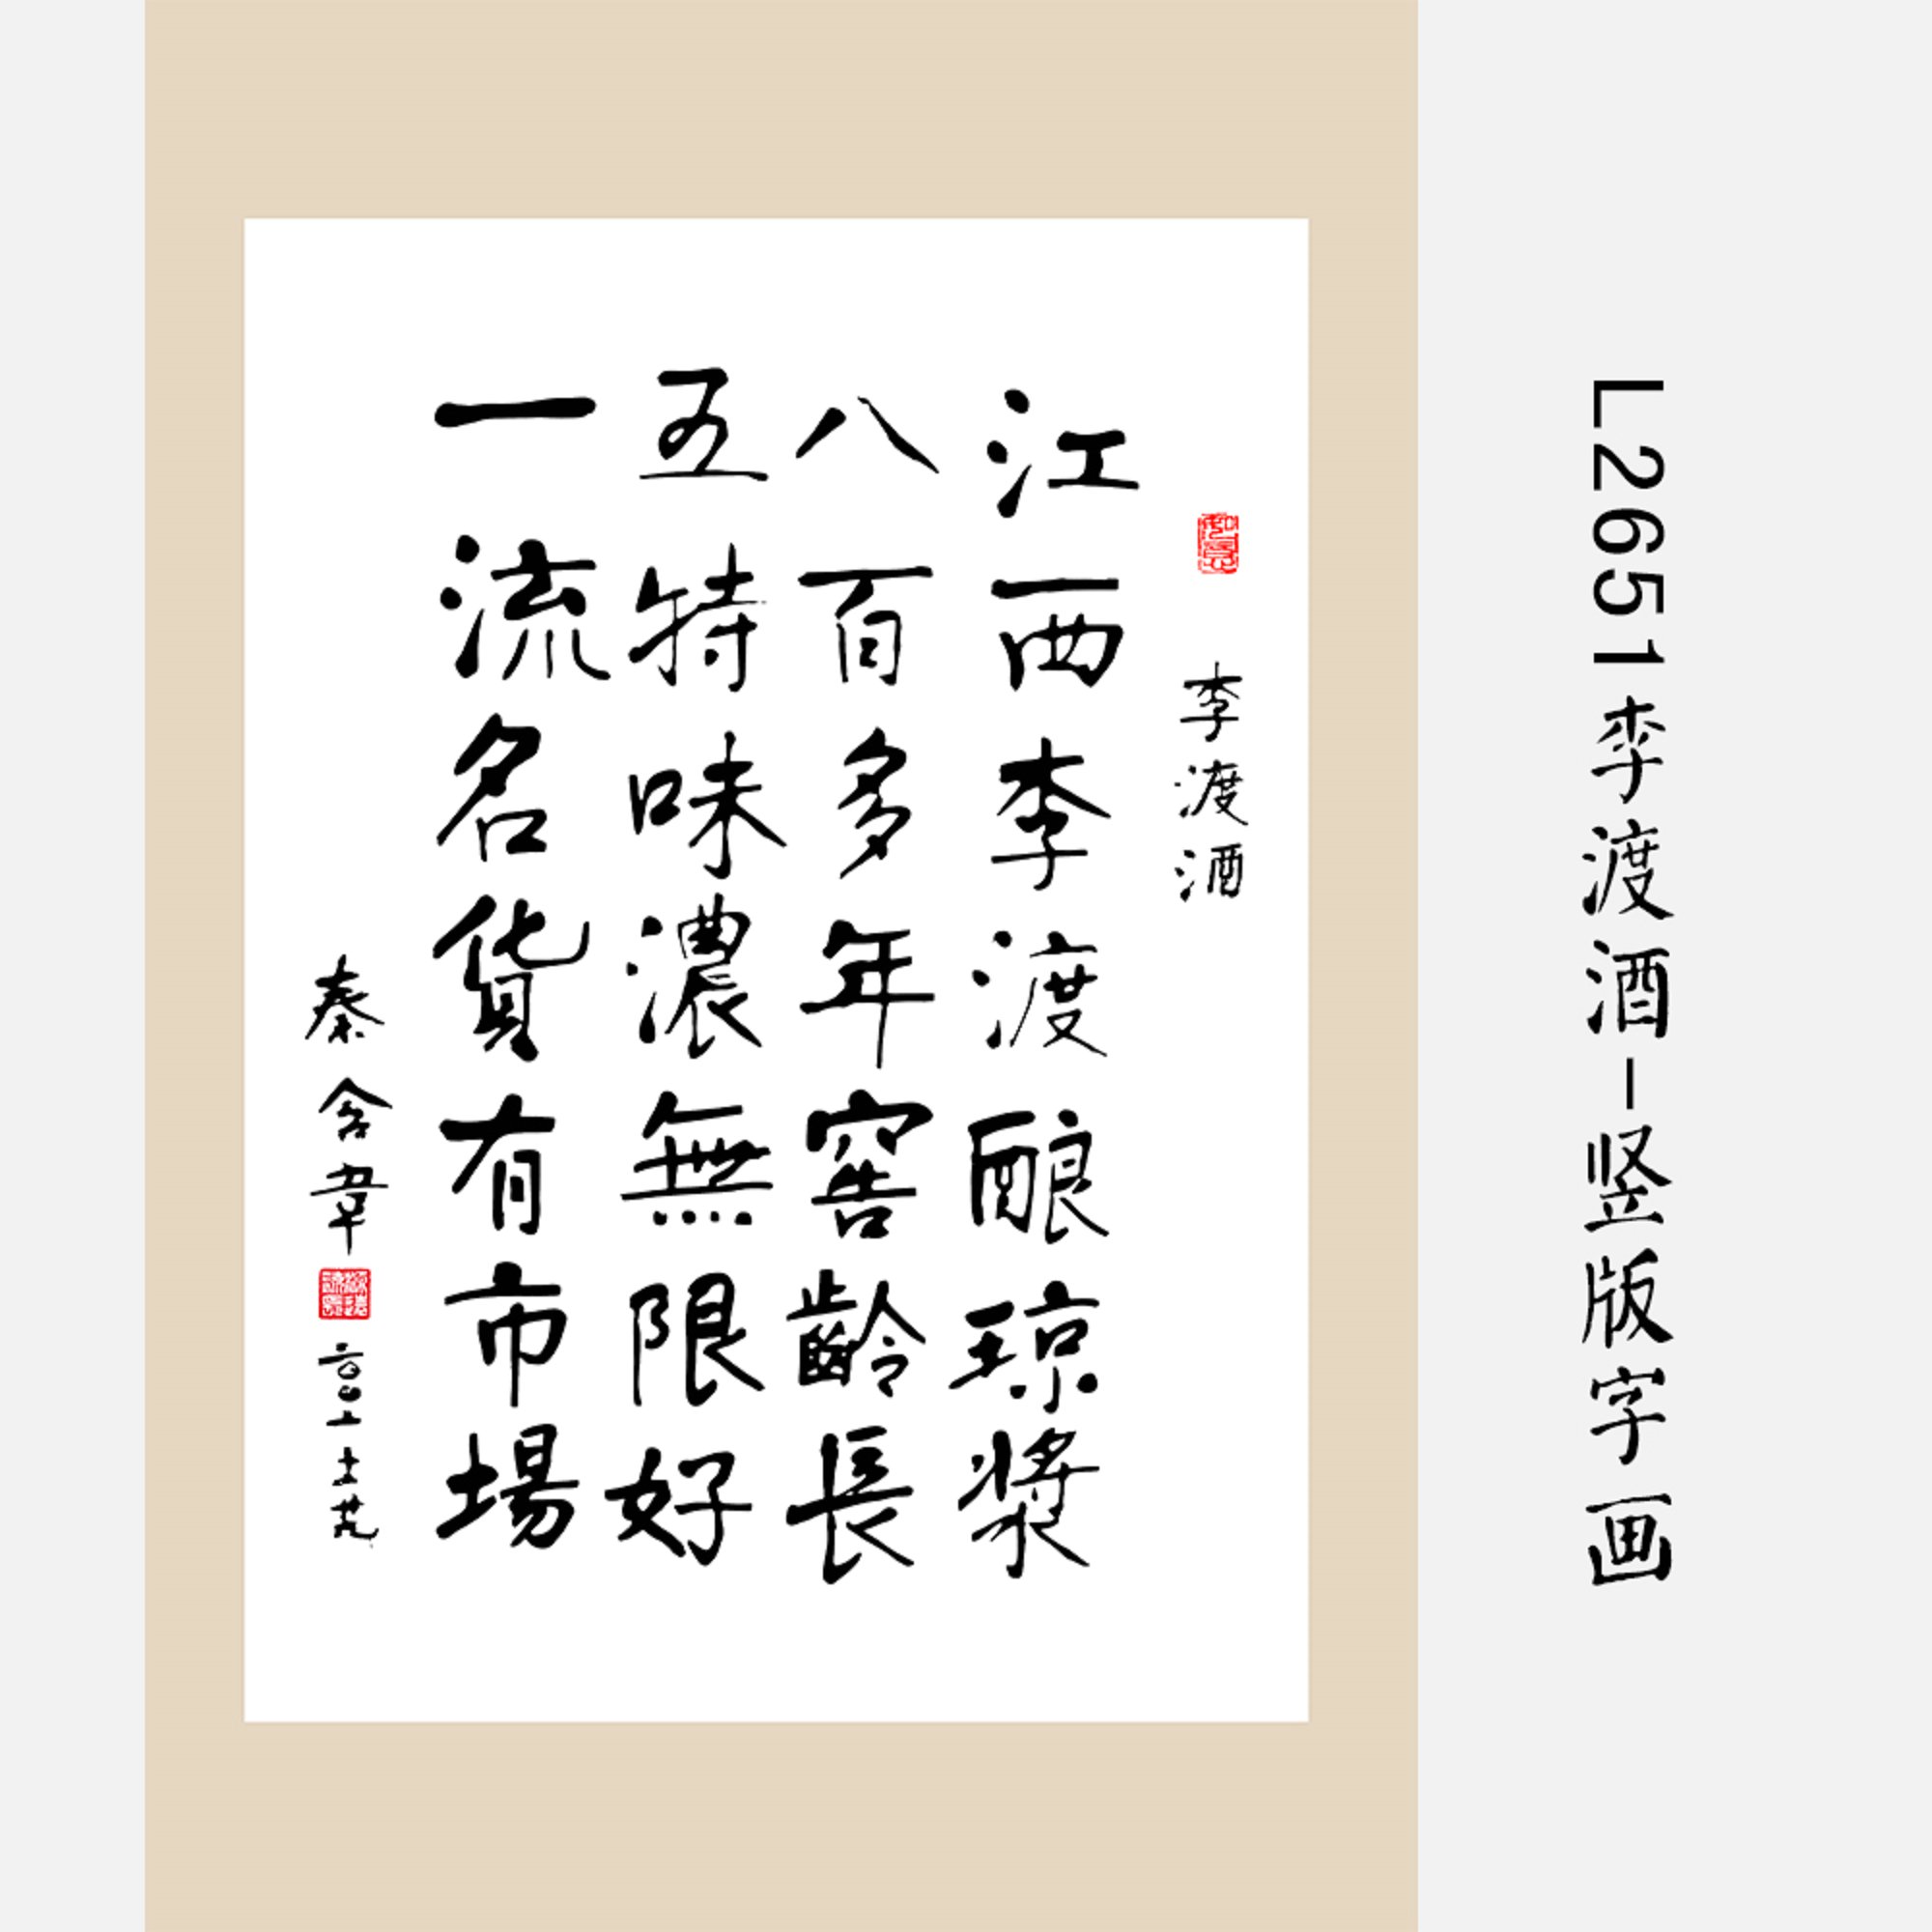 L2651李渡酒-竖版字画
李渡酒
江西李渡酿琼漿
八百多年窖齡長
五特味濃無限好
一流名貨有市場
秦含章